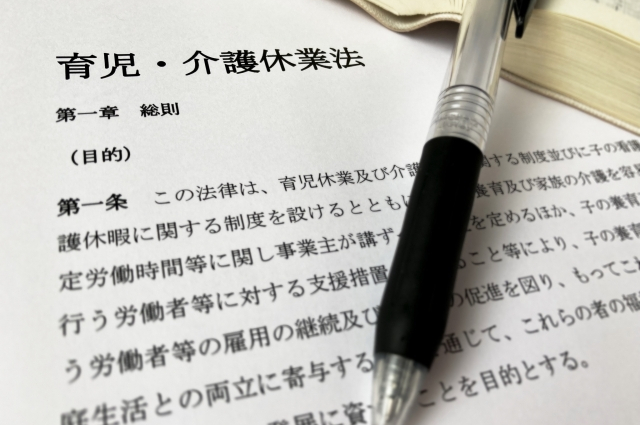 育児・介護休業法
第一章　総則
（目的）
第一条　この法律は、育児休業及び介護 関する制度並びに子の看護
護休暇に関する制度を設けるとともに 養育及び家族の介護を容
定労働時間等に関し事業主が講ず を定めるほか、子の養育
行う労働者等に対する支援措置 こと等により、子の養
う労働者等の雇用の継続及び の促進を図り、もってこ
庭生活との両立に寄与する 通じて、これらの者の福
展に資 ことを目的とする。